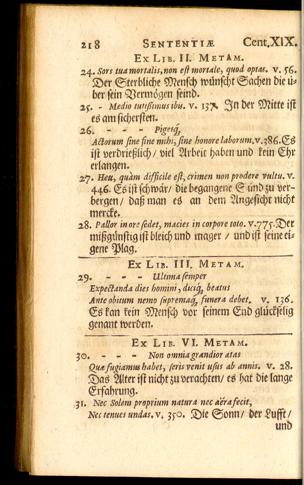 218 SENTENTIÆ Cent. XIX.
EX LIB. II. METAM.
24. Sors tua mortalis, non est mortale, quod optas. v. 56.
Der Sterbliche Mensch wünscht Sachen die ü-
ber sein Vermögen seind.
25. - Medio tutissimus ibis. v. 137. In der Mitte ist
es am sichersten.
26. - - - Pigetq́,
Actorum sine fine mihi, sine honore laborum. v. 386. Es
ist verdrießlich / viel Arbeit haben und kein Ehr
erlangen.
27. Heu, quàm difficile est, crimen non prodere vultu. v.
446. Es ist schwär / die begangene Sünd zu ver-
bergen / daß man es an dem Angesicht nicht
mercke.
28. Pallor in ore sedet, macies in corpore toto. v. 775. Der
mißgünstig ist bleich und mager / und ist seine ei-
gene Plag.
EX LIB. III. METAM.
29. - - - Ultima semper
Expectanda dies homini, dicíq́, beatus
Ante obitum nemo supremaq́, funera debet. v. 136.
Es kan kein Mensch vor seinem End glückselig
genant werden.
EX LIB. VI. METAM.
30. - - - Non omnia grandior ætas
Quæ fugiamus habet, seris venit usus ab annis. v. 28.
Das Alter ist nicht zu verachten / es hat die lange
Erfahrung.
31. Nec Solem proprium natura nec aëra fecit,
Nec tenues undas. v. 350. Die Sonn / der Lufft /
und